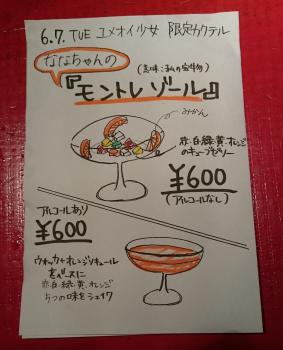 6.7. TUE ユメオイ少女 限定カクテル
ななちゃんの
(意味:私の宝物)
『モントレゾール』
みかん
赤.白.緑.黄.オレンジ
のキューブゼリー
¥600
(アルコールなし)
アルコールあり
¥600
ウォッカ+オレンジリキュール
をベースに
赤.白.緑.黄.オレンジ
5つの味をシェイク